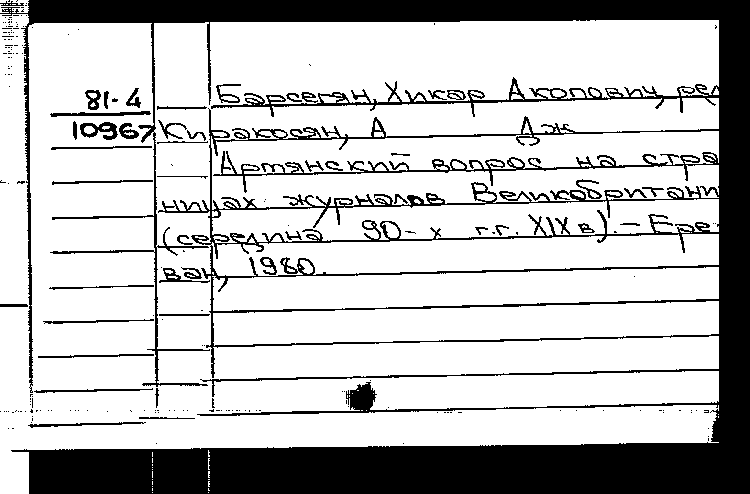 81-4 Барсегян, Хикар Акопович, ред
10967 Киракосян, А Дж
Артянский вопрос на стра-
ницах журналов Великобритани
(середина 90-х г.г. XIX в). – Ере-
ван, 1980.